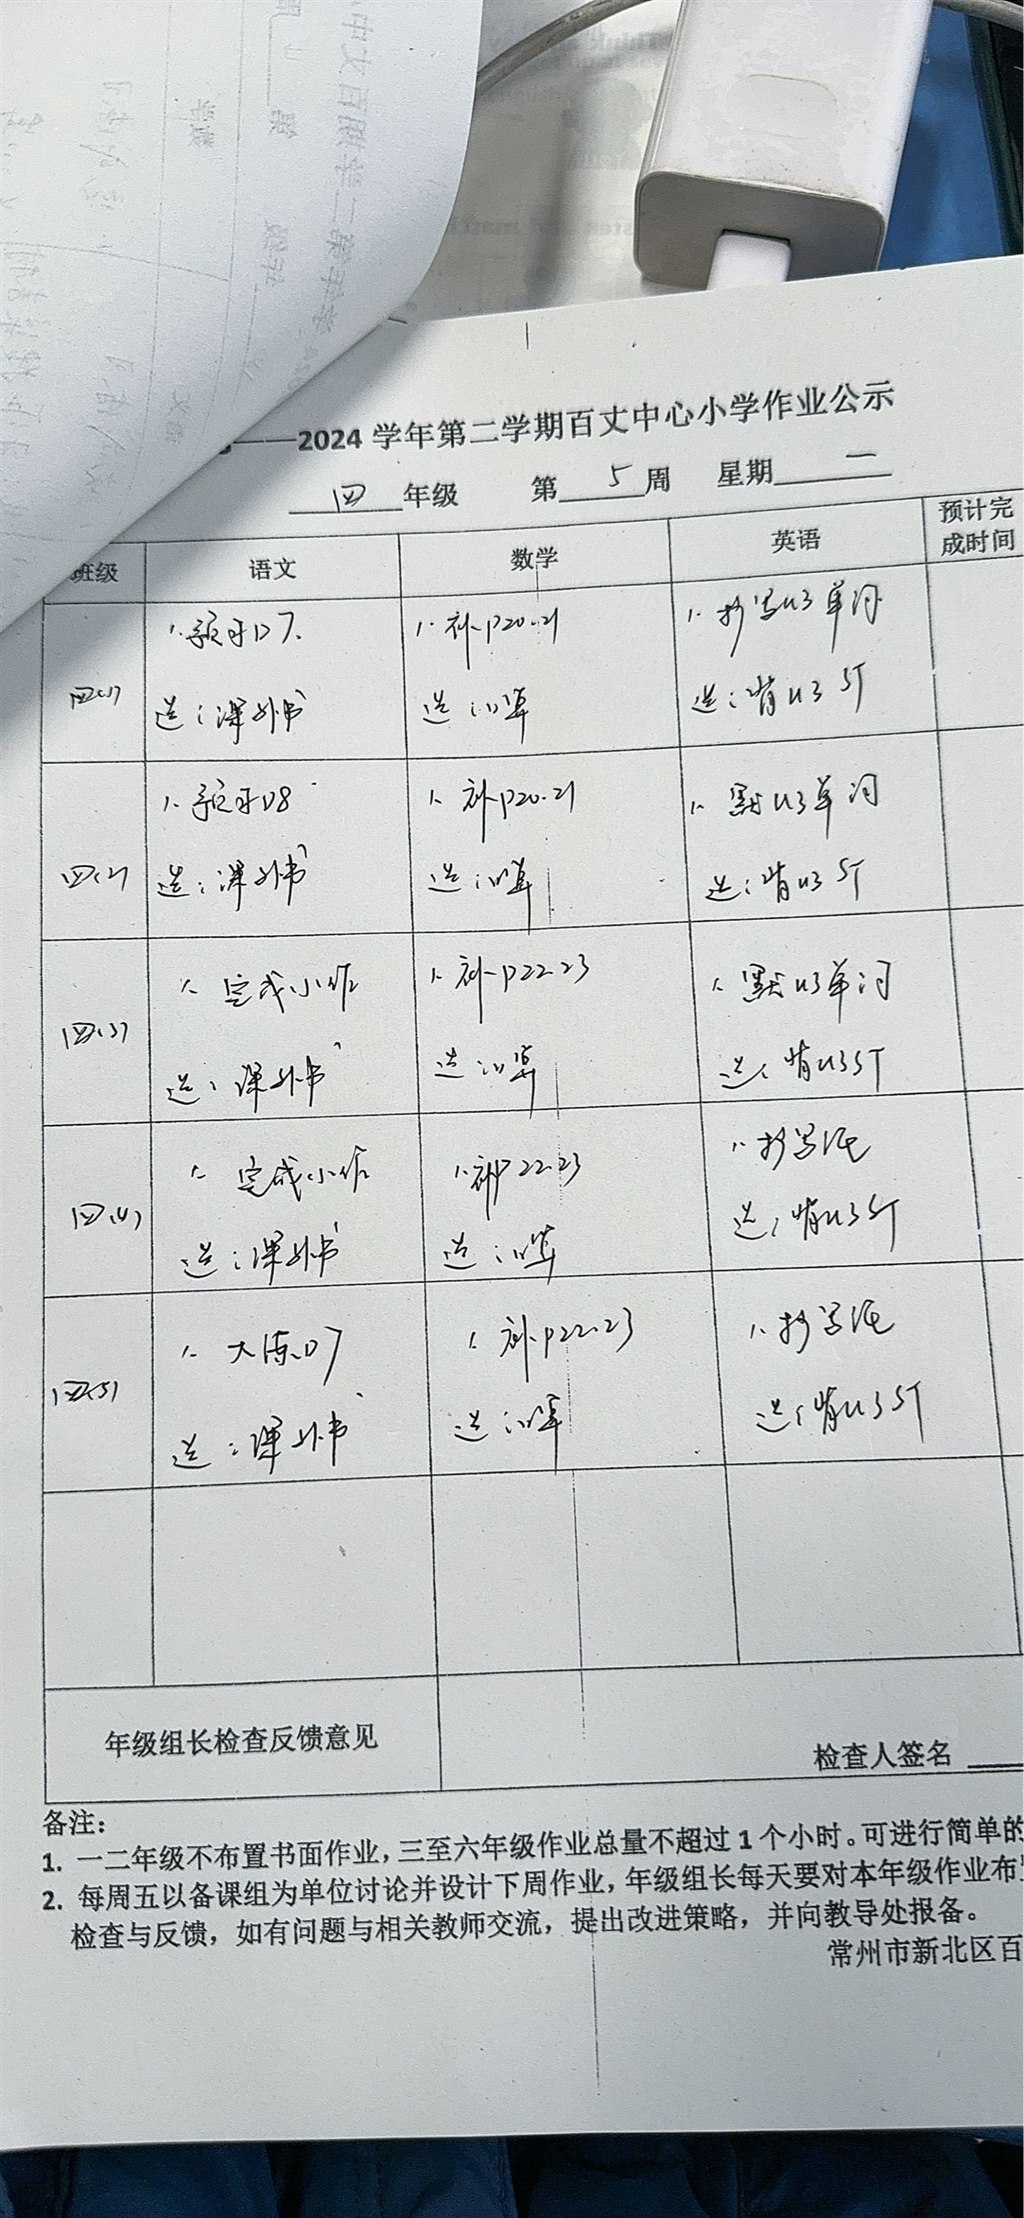 ——2024 学年第二学期百丈中心小学作业公示
四 年级 第 5 周 星期 一
班级 语文 数学 英语 预计完成时间
四(1) 1. 预习D7. 1. 补P20-21 1. 抄写U3单词
选:课外书 选:口算 选:背U3 ST
四(2) 1. 预习D8 1. 补P20-21 1. 默U3单词
选:课外书 选:口算 选:背U3 ST
四(3) 1. 完成小作 1. 补P22-23 1. 默U3单词
选:课外书 选:口算 选:背U3 ST
四(4) 1. 完成小作 1. 补P22-23 1. 抄写
选:课外书 选:口算 选:背U3 ST
四(5) 1. 大练D7 1. 补P22-23 1. 抄写
选:课外书 选:口算 选:背U3 ST
年级组长检查反馈意见
检查人签名
备注:
1. 一二年级不布置书面作业,三至六年级作业总量不超过 1 个小时。可进行简单的
2. 每周五以备课组为单位讨论并设计下周作业,年级组长每天要对本年级作业布
检查与反馈,如有问题与相关教师交流,提出改进策略,并向教导处报备。
常州市新北区百